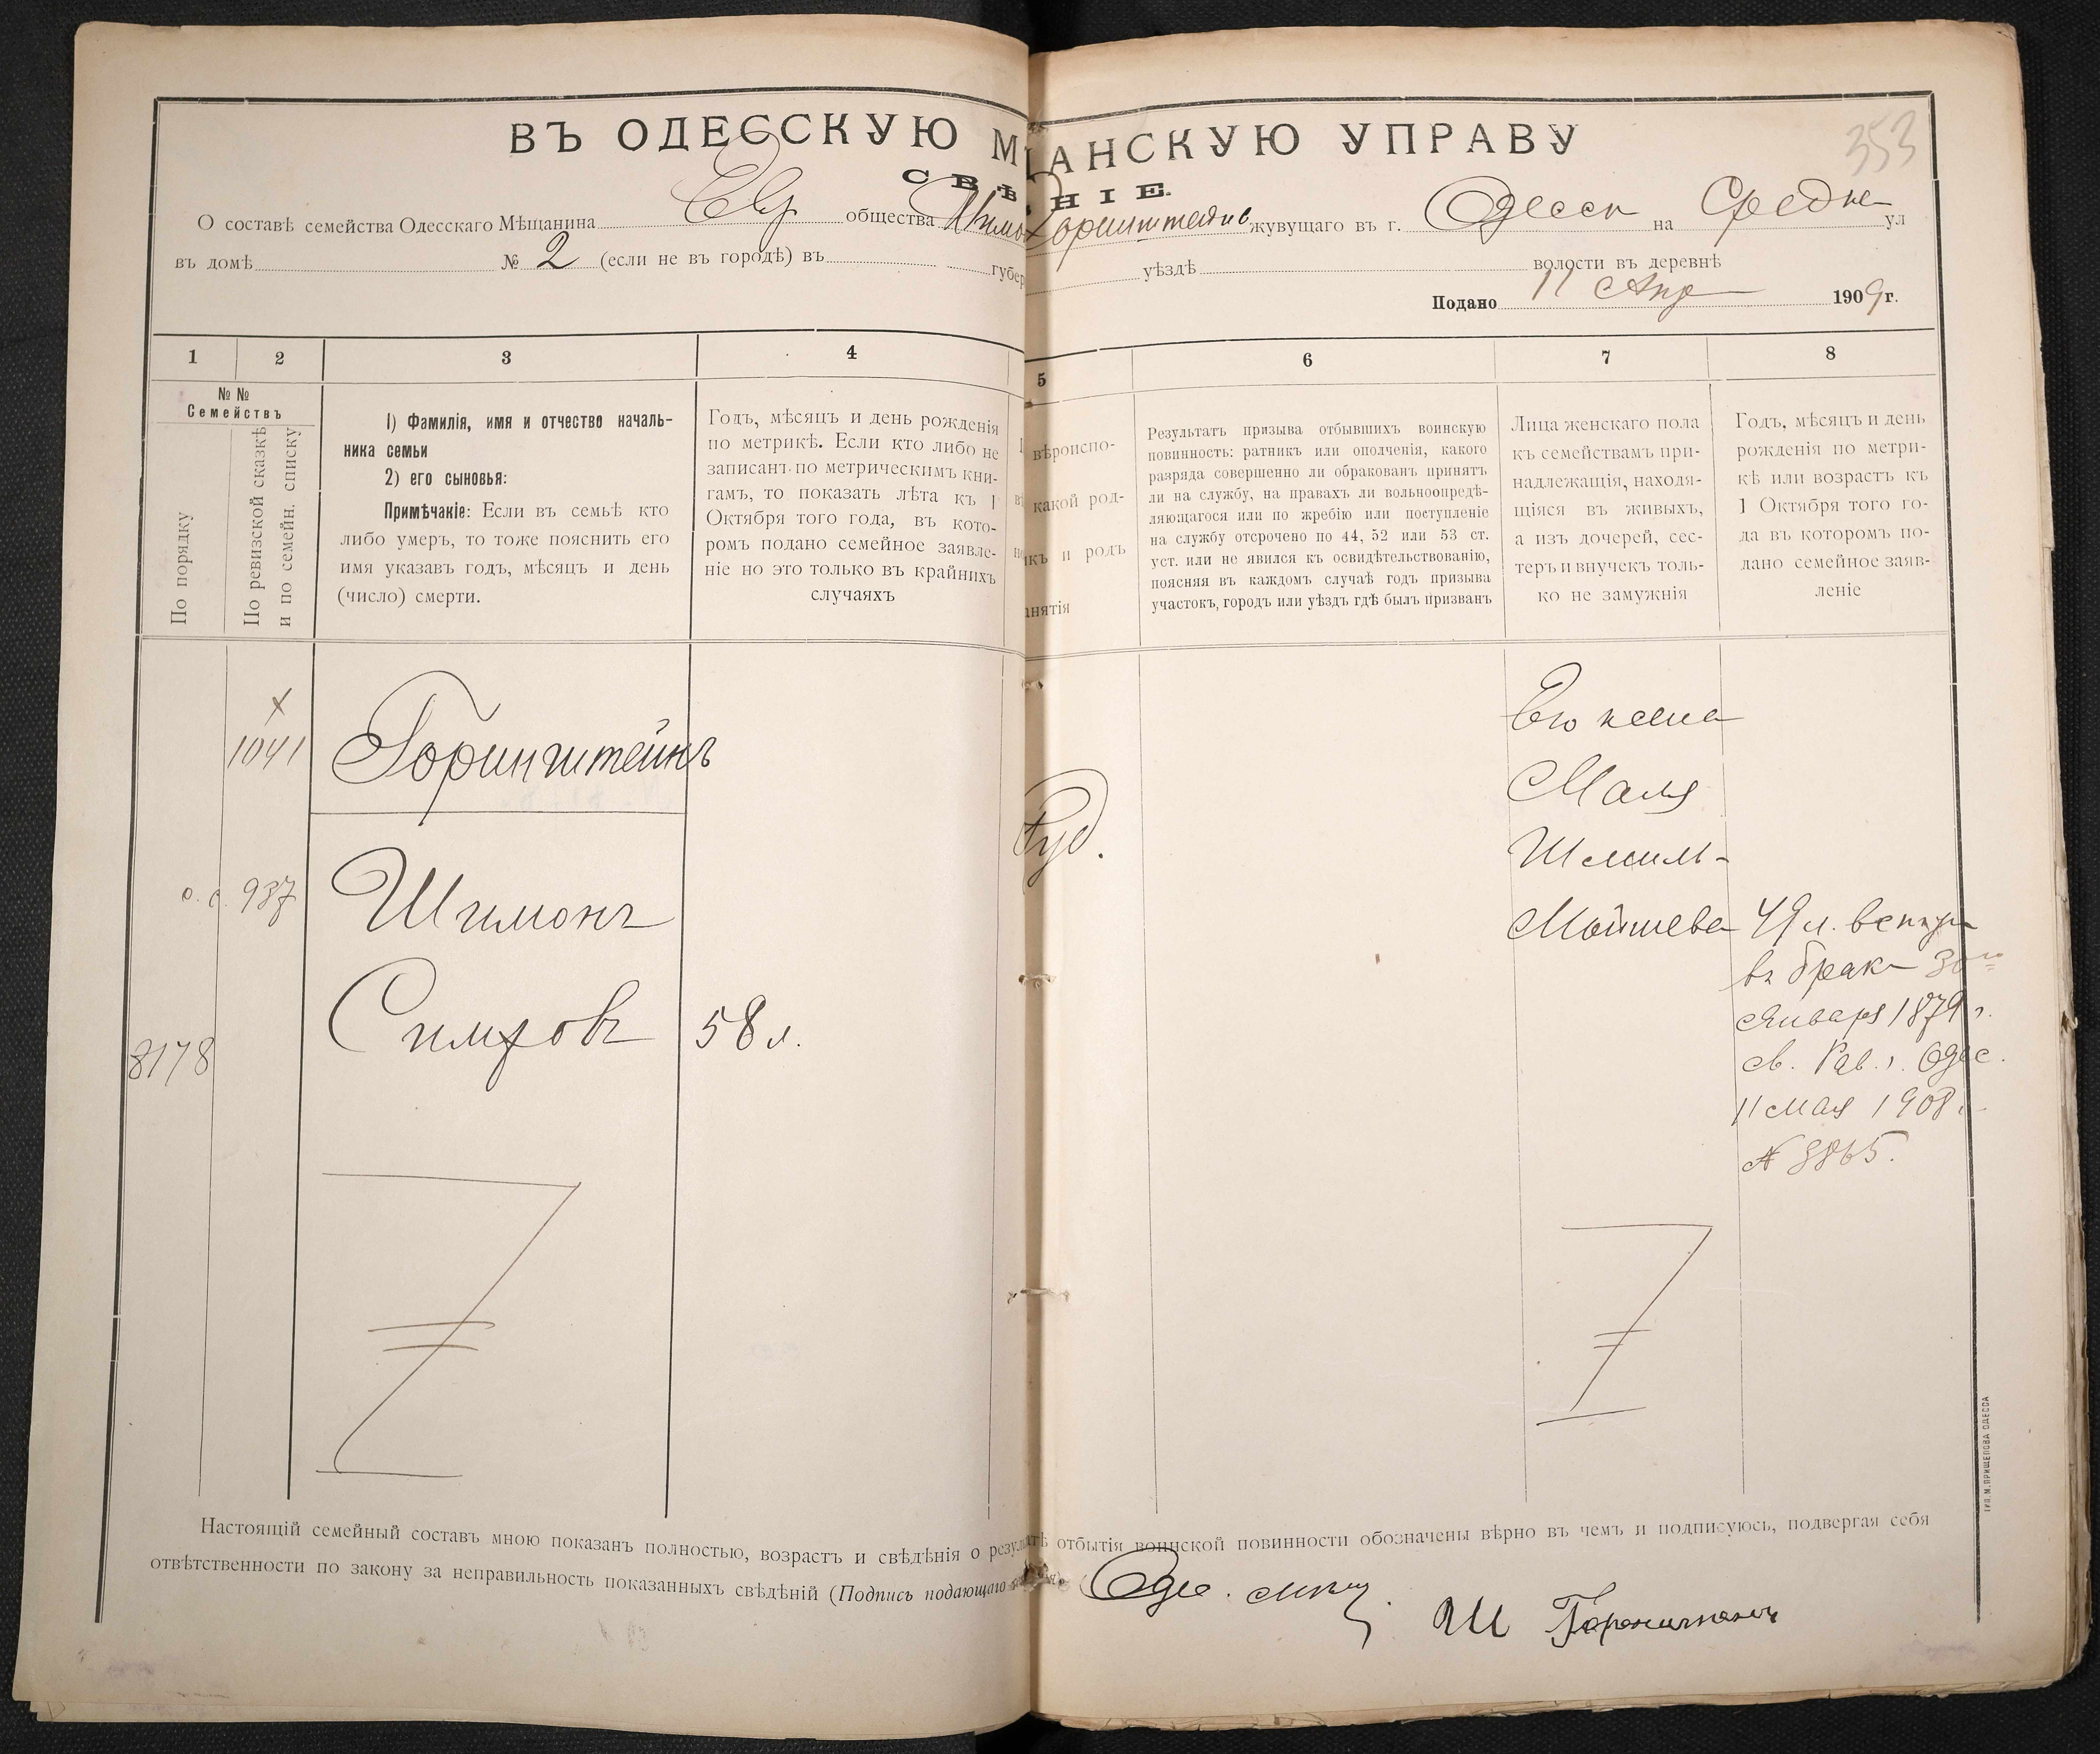 353
ВЪ ОДЕССКУЮ М ЩАНСКУЮ УПРАВУ
СВѢ НІЕ.
О составѣ семейства Одесскаго Мѣщанина Евр общества Шимо Горинштейнъ жувущаго въ г. Одессѣ на Средне ул
въ домѣ № 2 (если не въ городѣ) въ губер уѣздѣ волости въ деревнѣ
Подано 11 Апр 1909 г.
1 2 3 4 5 6 7 8
№ №
Семействъ
По порядку
По ревизской сказкѣ
и по семейн. списку
1) Фамилія, имя и отчество началь-
ника семьи
2) его сыновья:
Примѣчаніе: Если въ семьѣ кто
либо умеръ, то тоже пояснить его
имя указавъ годъ, мѣсяцъ и день
(число) смерти.
Годъ, мѣсяцъ и день рожденія
по метрикѣ. Если кто либо не
записанъ по метрическимъ кни-
гамъ, то показать лѣта къ 1
Октября того года, въ кото-
ромъ подано семейное заявле-
ніе но это только въ крайнихъ
случаяхъ
вѣроиспо-
какой род-
икъ и родъ
анятія
Результатъ призыва отбывшихъ воинскую
повинность: ратникъ или ополченія, какого
разряда совершенно ли обракованъ принятъ
ли на службу, на правахъ ли вольноопредѣ-
ляющагося или по жребію или поступленіе
на службу отсрочено по 44, 52 или 53 ст.
уст. или не явился къ освидѣтельствованію,
поясняя въ каждомъ случаѣ годъ призыва
участокъ, городъ или уѣздъ гдѣ былъ призванъ
Лица женскаго пола
къ семействамъ при-
надлежащія, находя-
щіяся въ живыхъ,
а изъ дочерей, сес-
теръ и внучекъ толь-
ко не замужнія
Годъ, мѣсяцъ и день
рожденія по метри-
кѣ или возрастъ къ
1 Октября того го-
да въ которомъ по-
дано семейное заяв-
леніе
х
1041
Горинштейнъ
о. с. 937
Шимонъ
8178
Симховъ 58 л.
Іуд.
Его жена
Маля
Шмиль-
Мойшева 49 л. вступ.
въ бракъ 30го
Января 1879 г.
св. Рав. г. Одес.
11 мая 1908 г.
№ 8865.
Настоящій семейный составъ мною показанъ полностью, возрастъ и свѣдѣнія о результатѣ отбытія воинской повинности обозначены вѣрно въ чемъ и подписуюсь, подвергая себя
отвѣтственности по закону за неправильность показанныхъ свѣдѣній (Подпись подающаго
Одес. мѣщ. Ш
ТИП. М. ПРИЩЕПОВА ОДЕССА